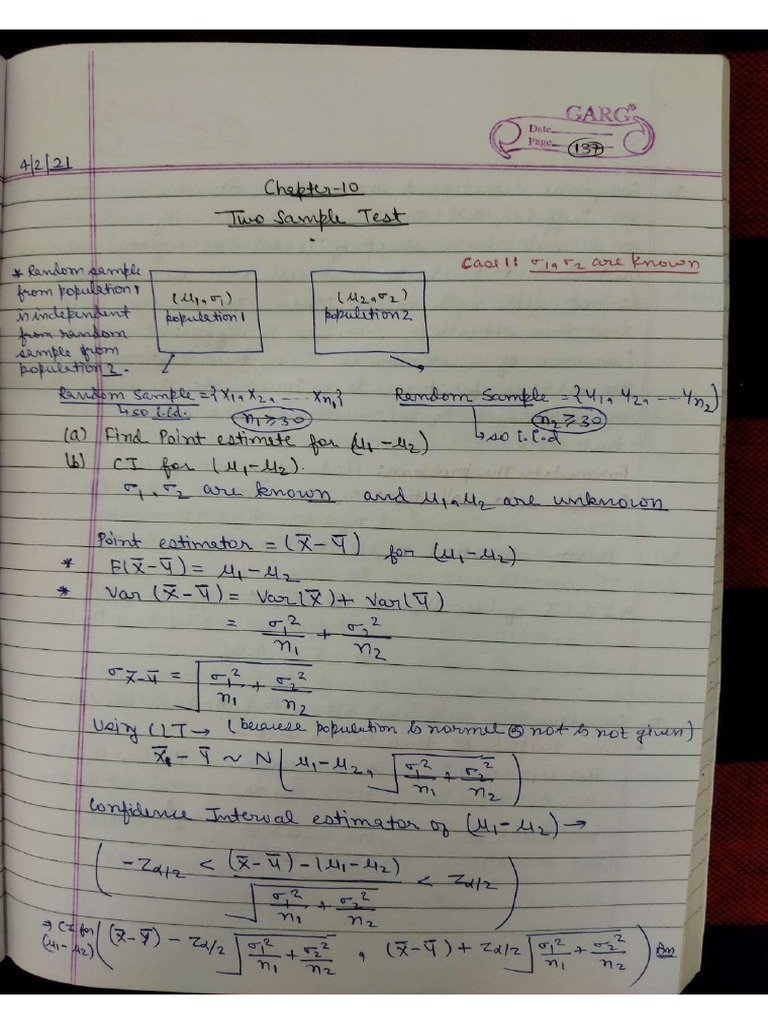 GARG®
Date
Page 137
4/2/21
Chapter-10
Two Sample Test
Case 1: σ₁, σ₂ are known
* Random sample
from population 1
is independent
from random
sample from
population 2.
(μ₁, σ₁)
population 1
(μ₂, σ₂)
population 2
Random Sample = {X₁, X₂, ---- Xn₁}
↳ so i.i.d.
n₁ ≥ 30
Random Sample = {Y₁, Y₂, --- Yn₂}
↳ so i.i.d
n₂ ≥ 30
(a) Find Point estimate for (μ₁ - μ₂)
(b) CI for (μ₁ - μ₂).
σ₁, σ₂ are known and μ₁, μ₂ are unknown
Point estimator = (X̄ - Ȳ) for (μ₁ - μ₂)
* E(X̄ - Ȳ) = μ₁ - μ₂
* Var (X̄ - Ȳ) = Var(X̄) + Var(Ȳ)
= σ₁²/n₁ + σ₂²/n₂
σ_X̄-Ȳ = √(σ₁²/n₁ + σ₂²/n₂)
Using CLT → (because population is normal or not is not given)
X̄ - Ȳ ~ N(μ₁ - μ₂, √(σ₁²/n₁ + σ₂²/n₂))
Confidence Interval estimator of (μ₁ - μ₂) →
(-Zα/2 < ((X̄ - Ȳ) - (μ₁ - μ₂))/√(σ₁²/n₁ + σ₂²/n₂) < Zα/2)
⇒ CI for (μ₁ - μ₂) ((X̄ - Ȳ) - Zα/2 √(σ₁²/n₁ + σ₂²/n₂), (X̄ - Ȳ) + Zα/2 √(σ₁²/n₁ + σ₂²/n₂)) Ans